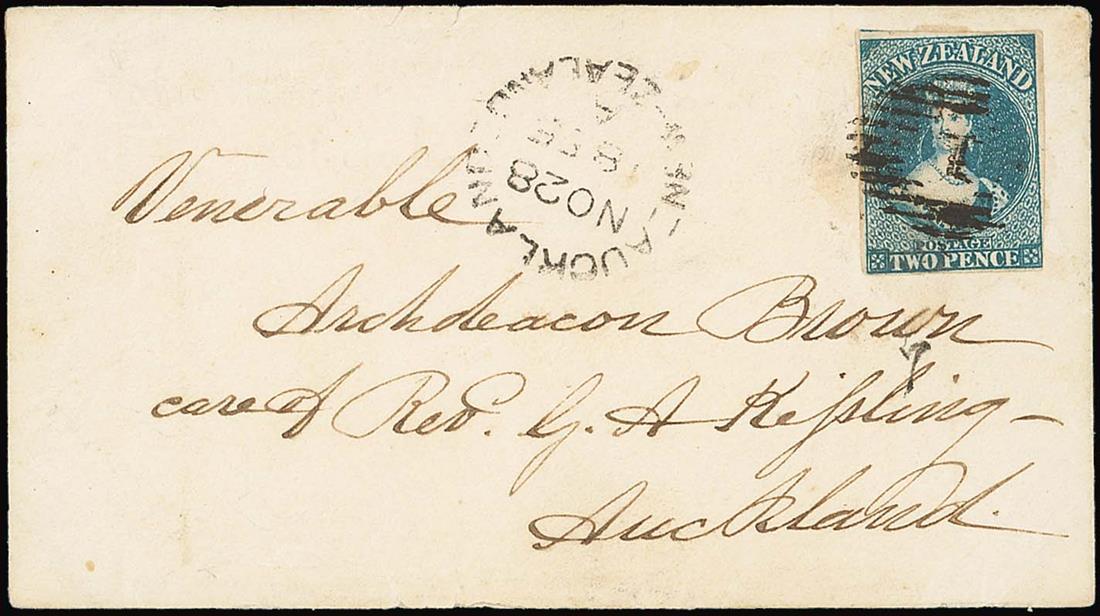 NEW ZEALAND
POSTAGE
TWO PENCE
AUCKLAND
NEW-ZEALAND
NO 28
Venerable
Archdeacon Brown
care of Rev. G. A Kissling
Auckland.